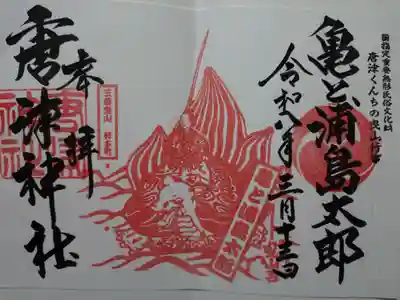 国指定重要無形民俗文化財
唐津くんちの曳山行事
亀と浦島太郎
令和八年三月十三日
亀と浦島太郎
三番曳山 材木町
奉拝
唐津神社